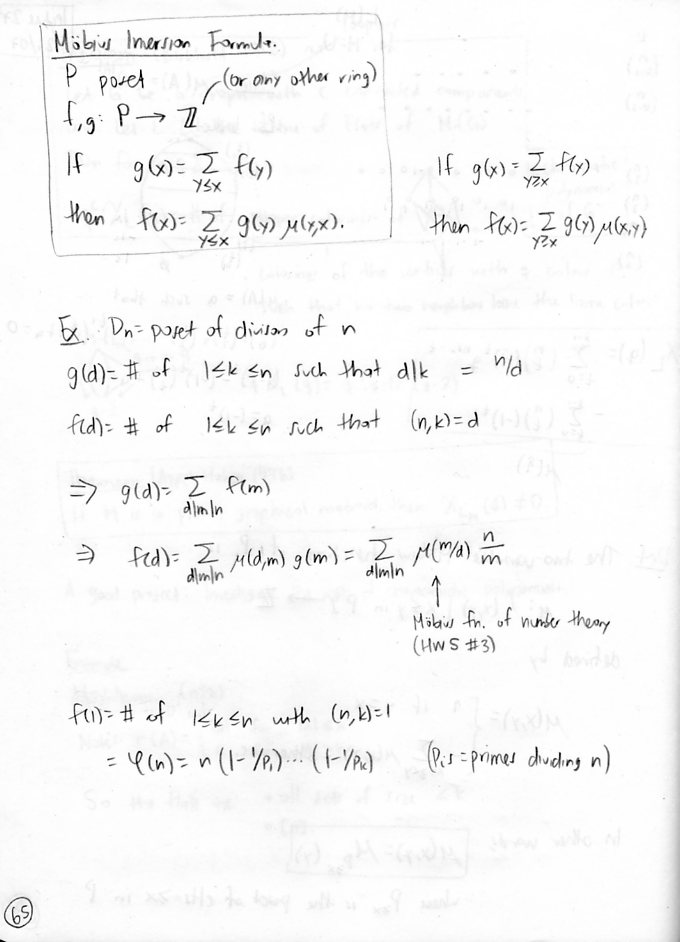 Möbius Inversion Formula.
P poset (or any other ring)
f,g: P → ℤ
If g(x) = ∑_{y≤x} f(y)
then f(x) = ∑_{y≤x} g(y) μ(y,x).
If g(x) = ∑_{y≥x} f(y)
then f(x) = ∑_{y≥x} g(y) μ(x,y)
Ex. Dn = poset of divisors of n
g(d) = # of 1≤k≤n such that d|k = n/d
f(d) = # of 1≤k≤n such that (n,k)=d
⇒ g(d) = ∑_{d|m|n} f(m)
⇒ f(d) = ∑_{d|m|n} μ(d,m) g(m) = ∑_{d|m|n} μ(m/d) n/m
↑
Möbius fn. of number theory
(HW5 #3)
f(1) = # of 1≤k≤n with (n,k)=1
= φ(n) = n (1-1/p₁) ··· (1-1/pₖ) (pᵢs = primes dividing n)
65